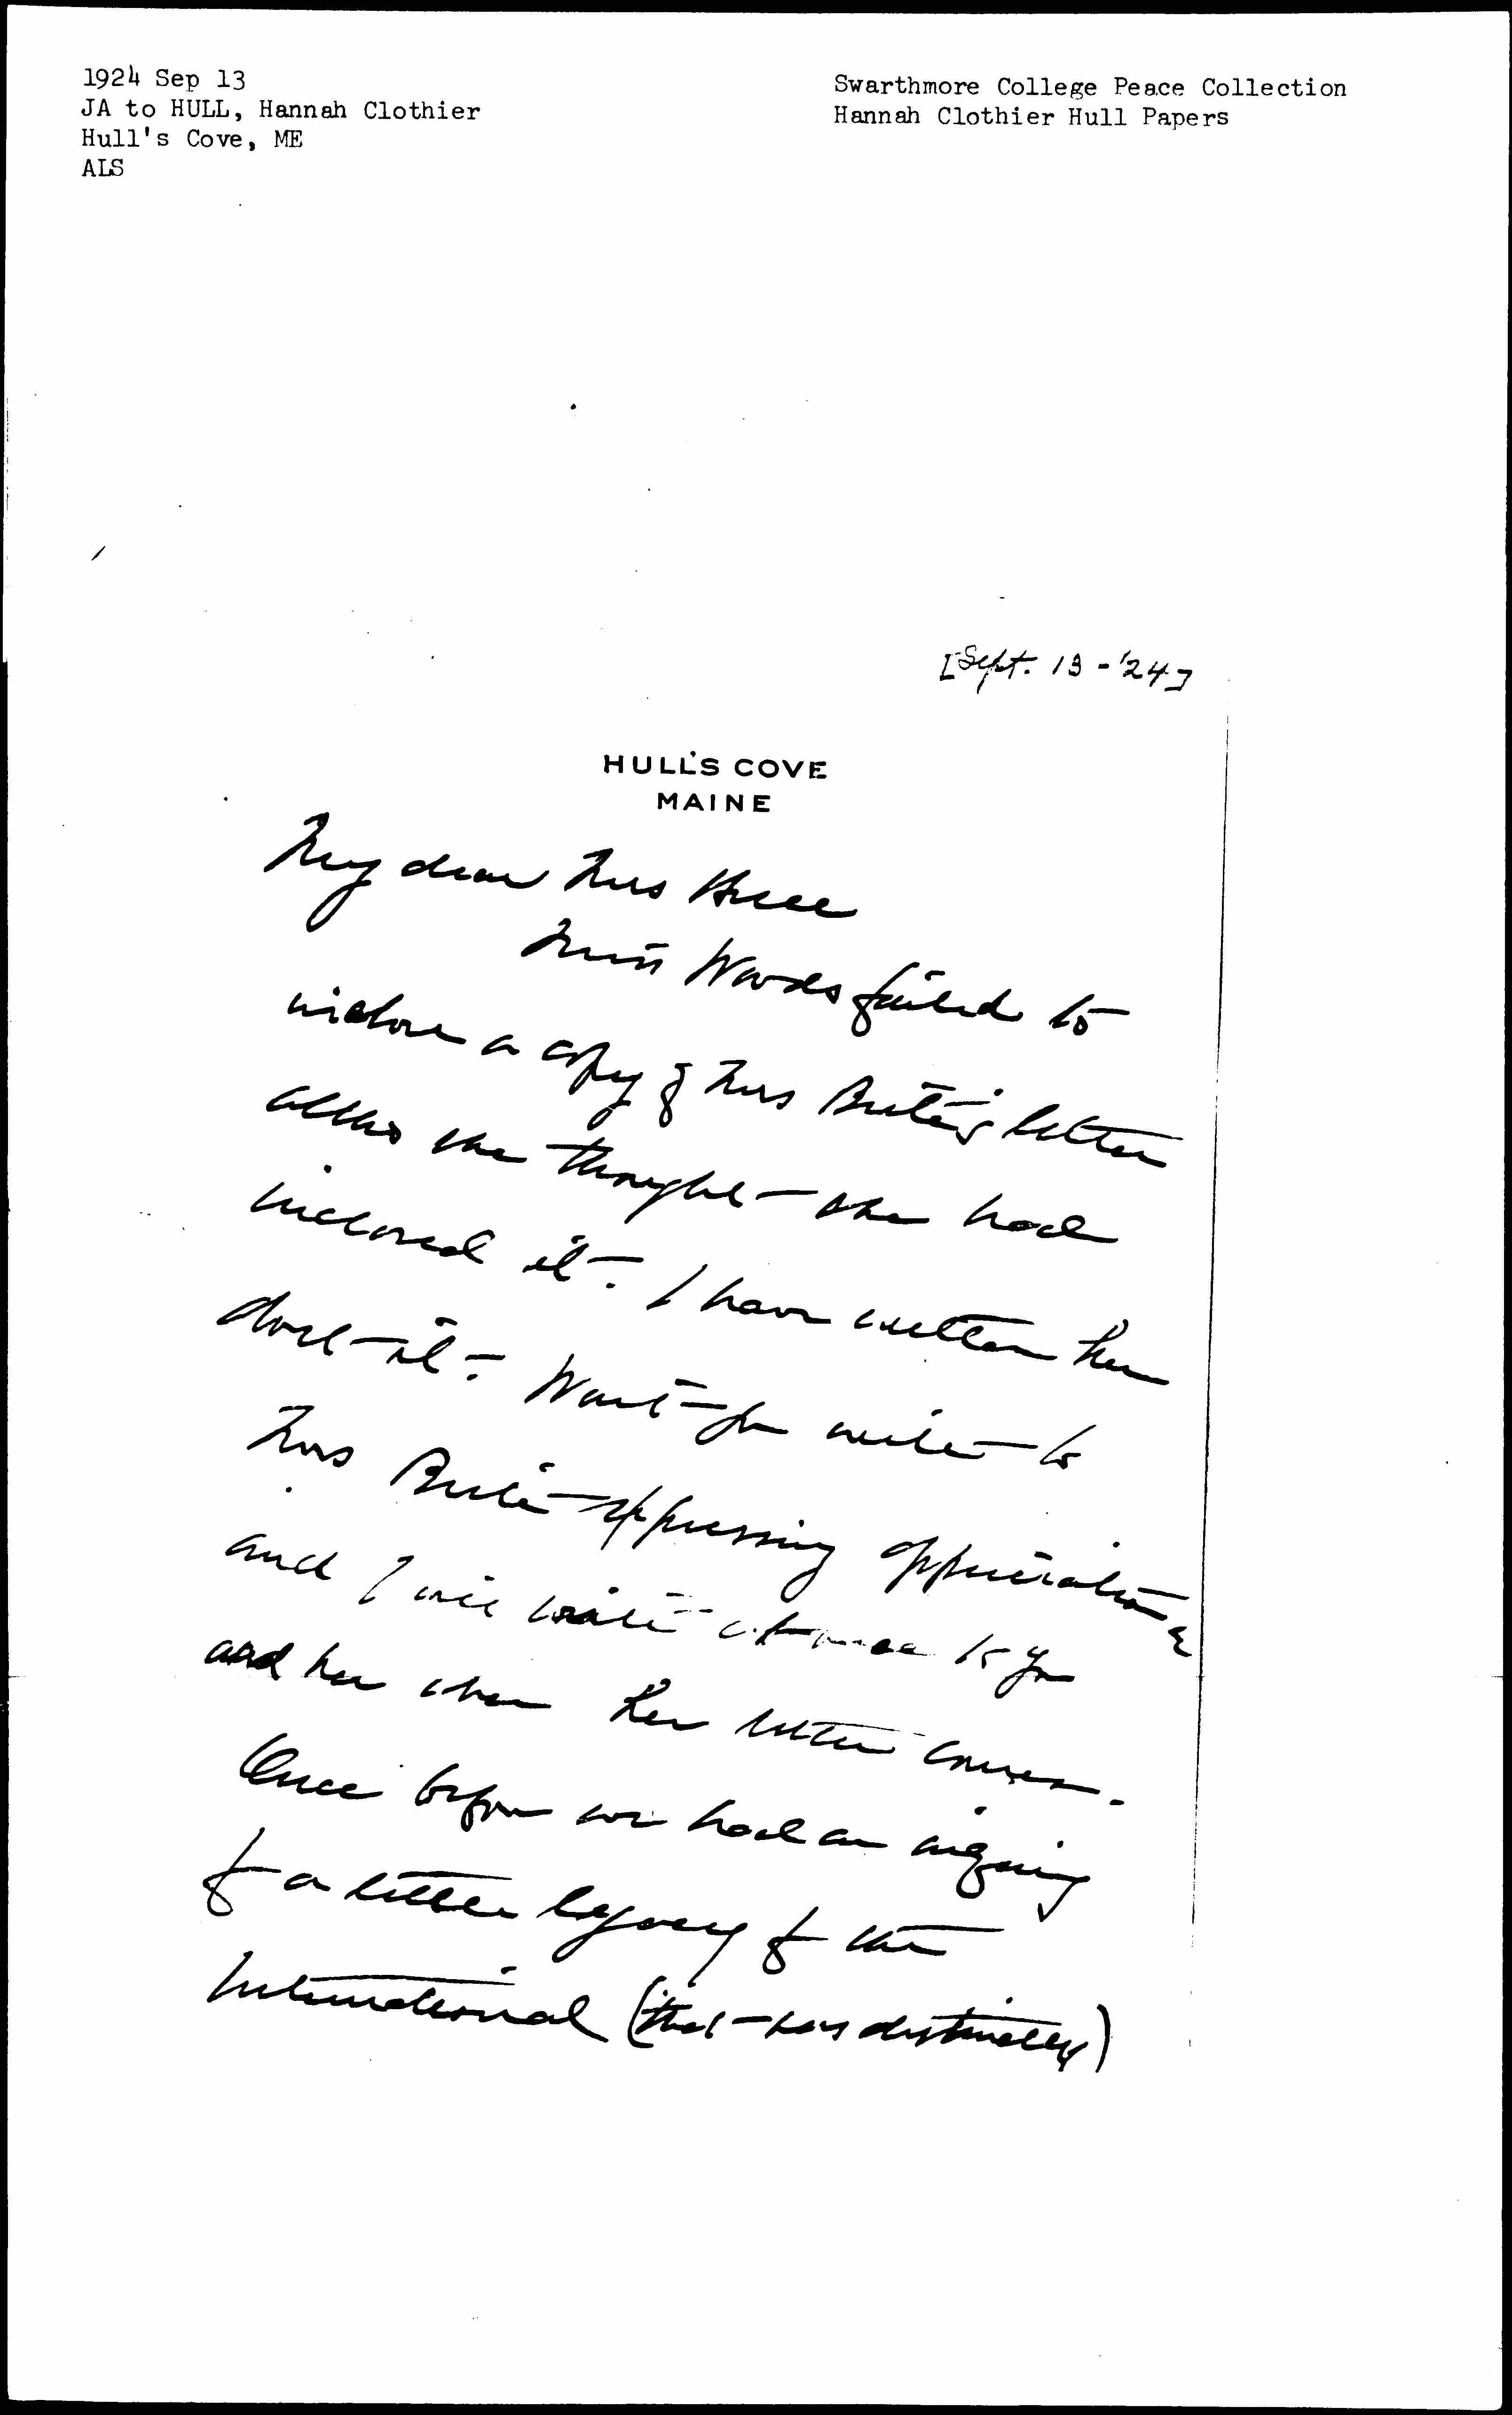 1924 Sep 13
JA to HULL, Hannah Clothier
Hull's Cove, ME
ALS
Swarthmore College Peace Collection
Hannah Clothier Hull Papers
[Sept. 13 - '24]
HULL'S COVE
MAINE
My dear Mrs Hull
Miss Woods failed to
inclose a copy of Mrs letter
altho she thought she had
inclosed it. I have written her
it. Won't you write to
Mrs expressing appreciation &
and I will write at once to you
and her when her letter comes.
Once before we had an inquiry
of a little legacy of the
International (that was distinctly)